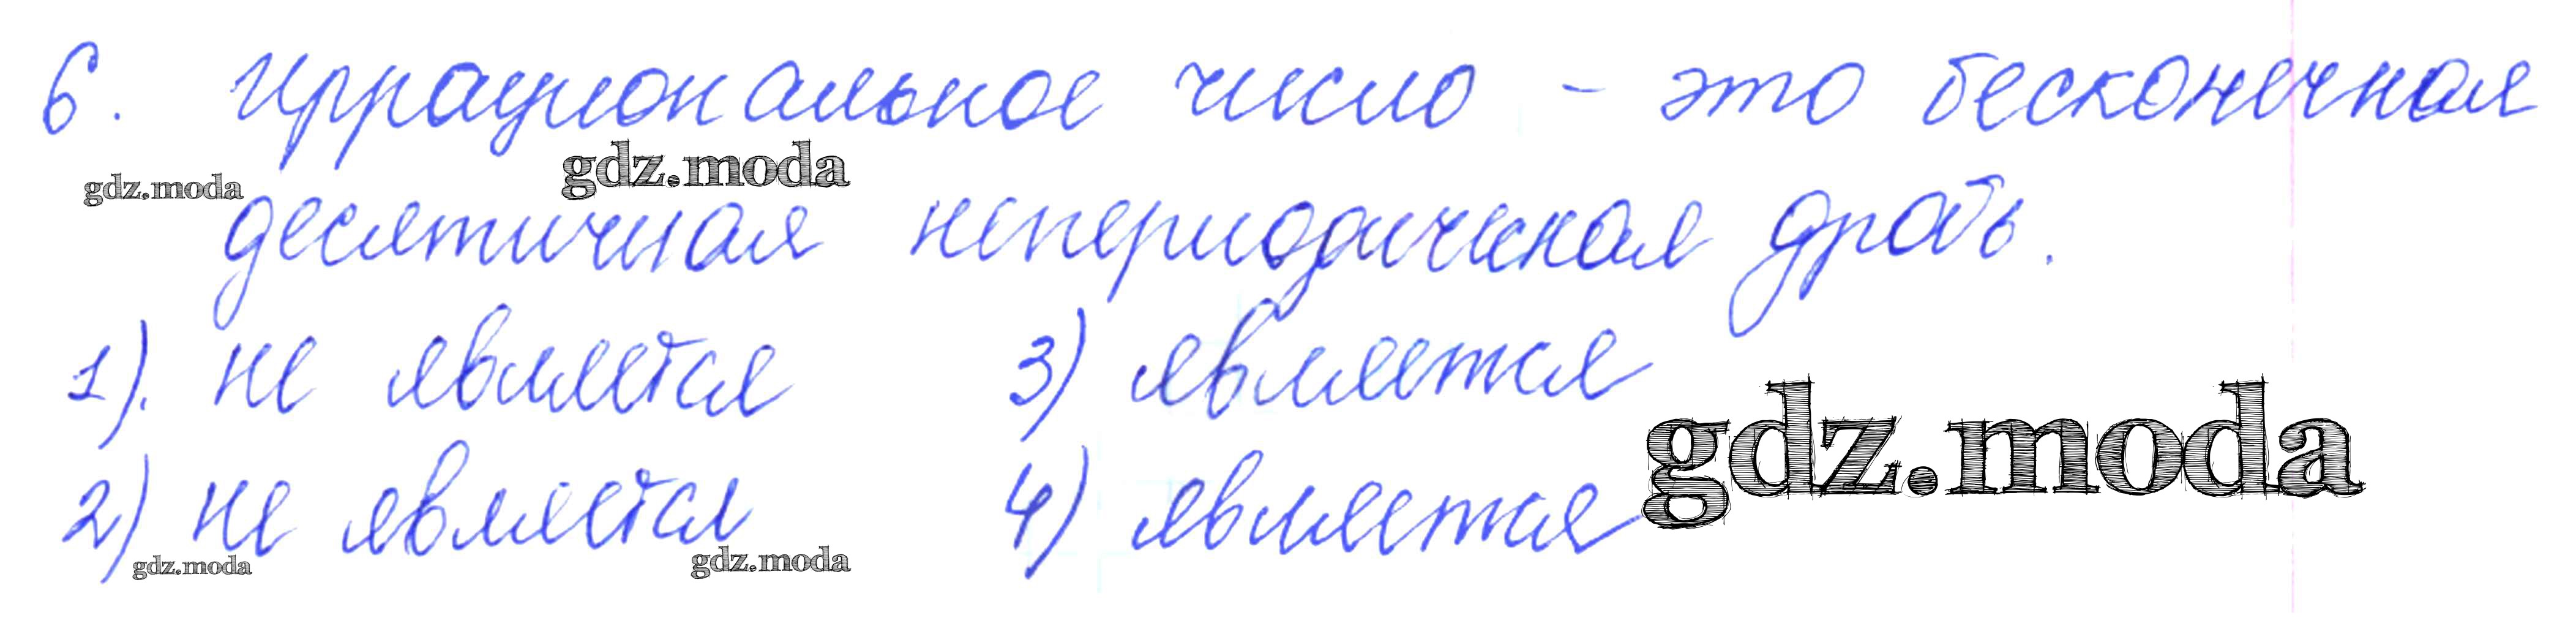 6. Иррациональное число - это бесконечная
gdz.moda gdz.moda
десятичная непериодическая дробь.
1). не является 3) является
gdz.moda
2) не является 4) является
gdz.moda gdz.moda